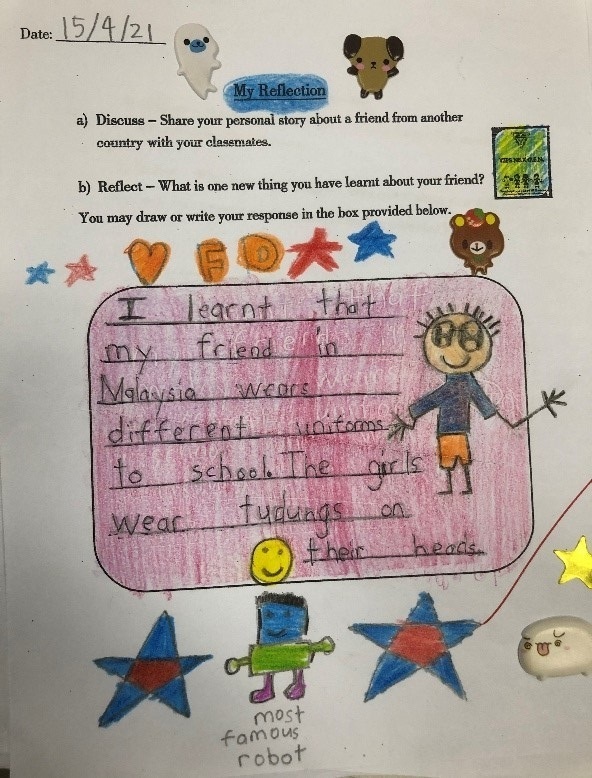 Date: 15/4/21
My Reflection
a) Discuss – Share your personal story about a friend from another
country with your classmates.
b) Reflect – What is one new thing you have learnt about your friend?
You may draw or write your response in the box provided below.
F D
I learnt that
my friend in
Malaysia wears
different uniforms
to school. The girls
wear tudungs on
their heads.
most
famous
robot